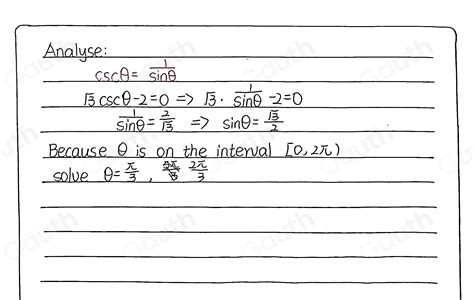 Analyse:
cscθ = 1/sinθ
√3 cscθ - 2 = 0 => √3 · 1/sinθ - 2 = 0
1/sinθ = 2/√3 => sinθ = √3/2
Because θ is on the interval [0, 2π)
solve θ = π/3 , 2π/3